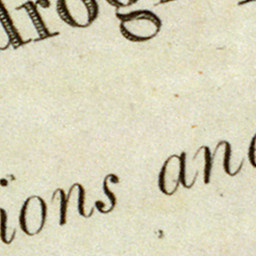 drog
ions and